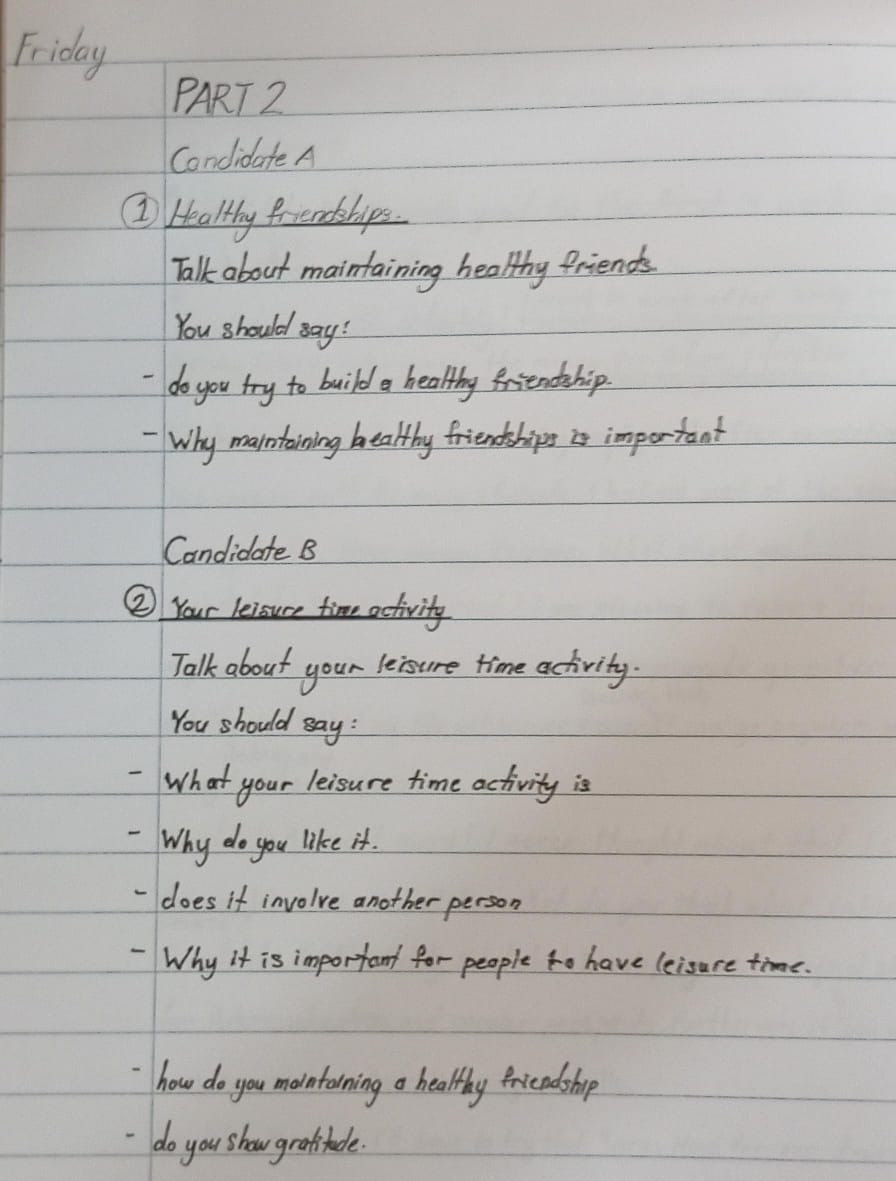 Friday
PART 2
Candidate A
① Healthy friendships.
Talk about maintaining healthy friends.
You should say:
- do you try to build a healthy friendship.
- Why maintaining healthy friendships is important
Candidate B
② Your leisure time activity
Talk about your leisure time activity.
You should say:
- What your leisure time activity is
- Why do you like it.
- does it involve another person
- Why it is important for people to have leisure time.
- how do you maintaining a healthy friendship
- do you show gratitude.